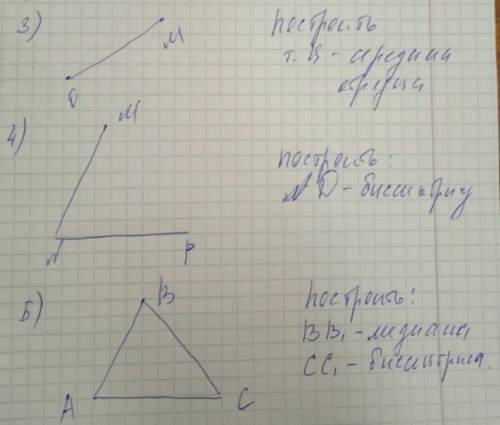 3)
M
O
построить
т. Ц - середина
отрезка
4)
M
N
P
построить:
ND - биссектрису
5)
B
A
C
построить:
BB₁ - медиана
CC₁ - биссектриса.